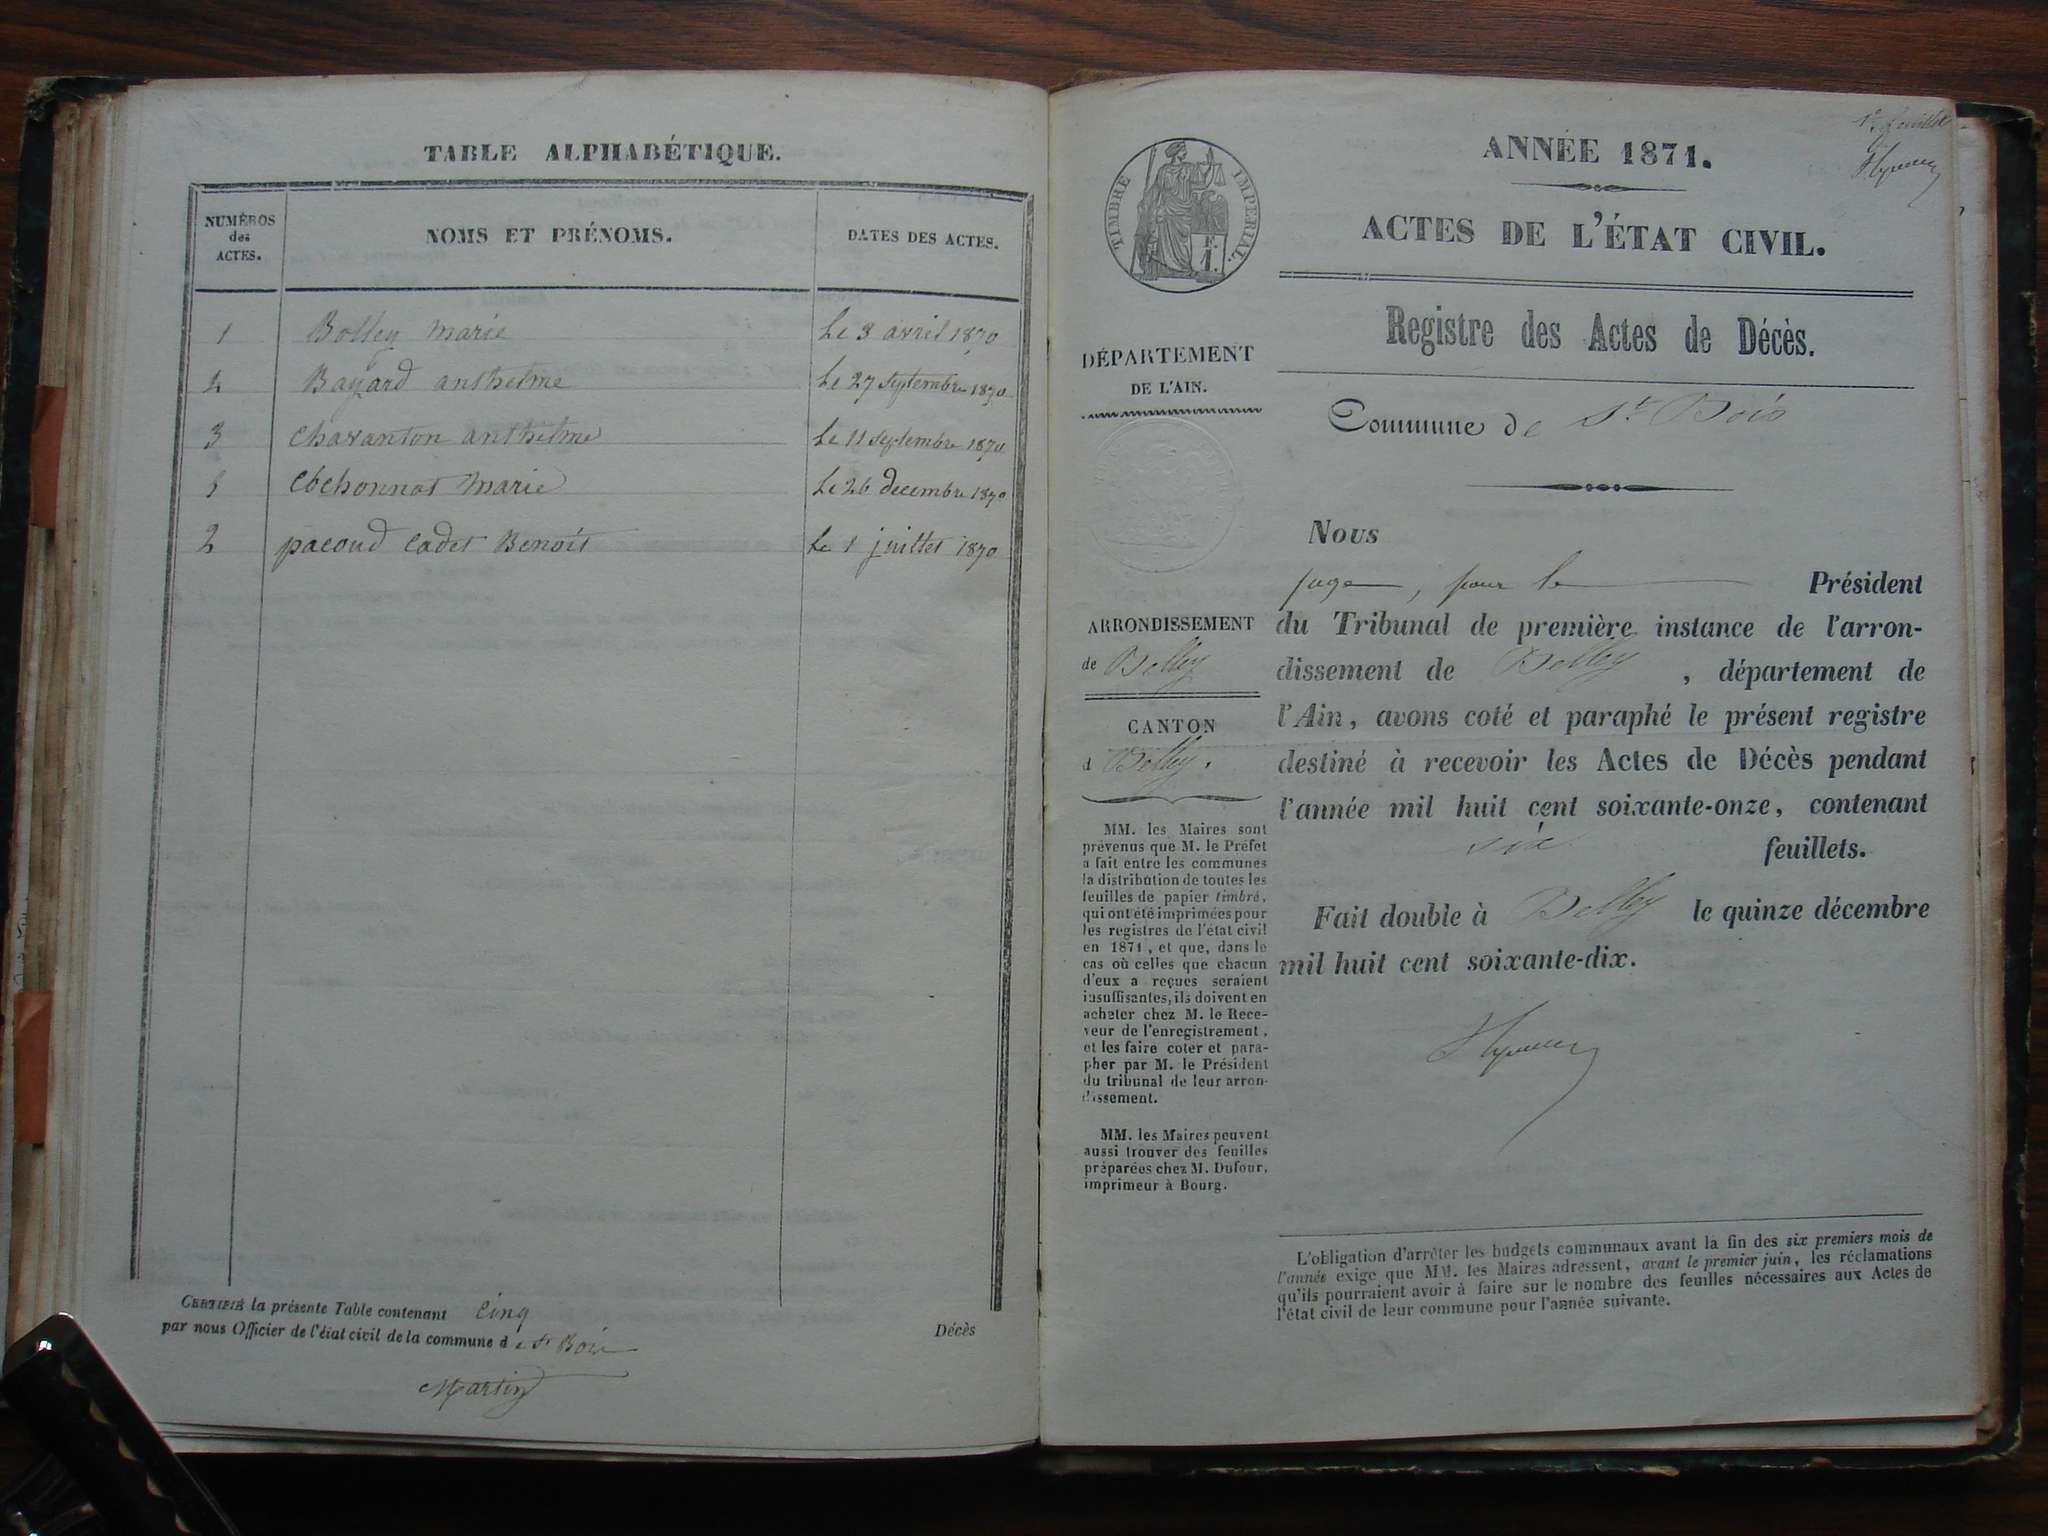 TABLE ALPHABÉTIQUE.
NUMÉROS
des
ACTES.
NOMS ET PRÉNOMS.
DATES DES ACTES.
1 Bolley marie Le 3 avril 1870
4 Bayard anthelme Le 27 septembre 1870
3 Chavanton anthelme Le 11 septembre 1870
5 marie Le 26 decembre 1870
2 pacoud Cadet Benoit Le 1 juillet 1870
CERTIFIÉ la présente Table contenant Cinq
Décès
par nous Officier de l'état civil de la commune de St Bois
Martin
1er feuillet
ANNÉE 1871.
TIMBRE IMPERIAL.
F.
1.
ACTES DE L'ÉTAT CIVIL.
Registre des Actes de Décès.
DÉPARTEMENT
DE L'AIN.
Commune de St Bois
ARRONDISSEMENT
de Belley
CANTON
d Belley.
MM. les Maires sont
prévenus que M. le Préfet
a fait entre les communes
la distribution de toutes les
feuilles de papier timbré,
qui ont été imprimées pour
les registres de l'état civil
en 1871, et que, dans le
cas où celles que chacun
d'eux a reçues seraient
insuffisantes, ils doivent en
acheter chez M. le Rece-
veur de l'enregistrement,
et les faire coter et para-
pher par M. le Président
du tribunal de leur arron-
dissement.
MM. les Maires peuvent
aussi trouver des feuilles
préparées chez M. Dufour,
imprimeur à Bourg.
Nous
juge, pour le Président
du Tribunal de première instance de l'arron-
dissement de Belley, département de
l'Ain, avons coté et paraphé le présent registre
destiné à recevoir les Actes de Décès pendant
l'année mil huit cent soixante-onze, contenant
six feuillets.
Fait double à Belley le quinze décembre
mil huit cent soixante-dix.
L'obligation d'arrêter les budgets communaux avant la fin des six premiers mois de
l'année exige que MM. les Maires adressent, avant le premier juin, les réclamations
qu'ils pourraient avoir à faire sur le nombre des feuilles nécessaires aux Actes de
l'état civil de leur commune pour l'année suivante.